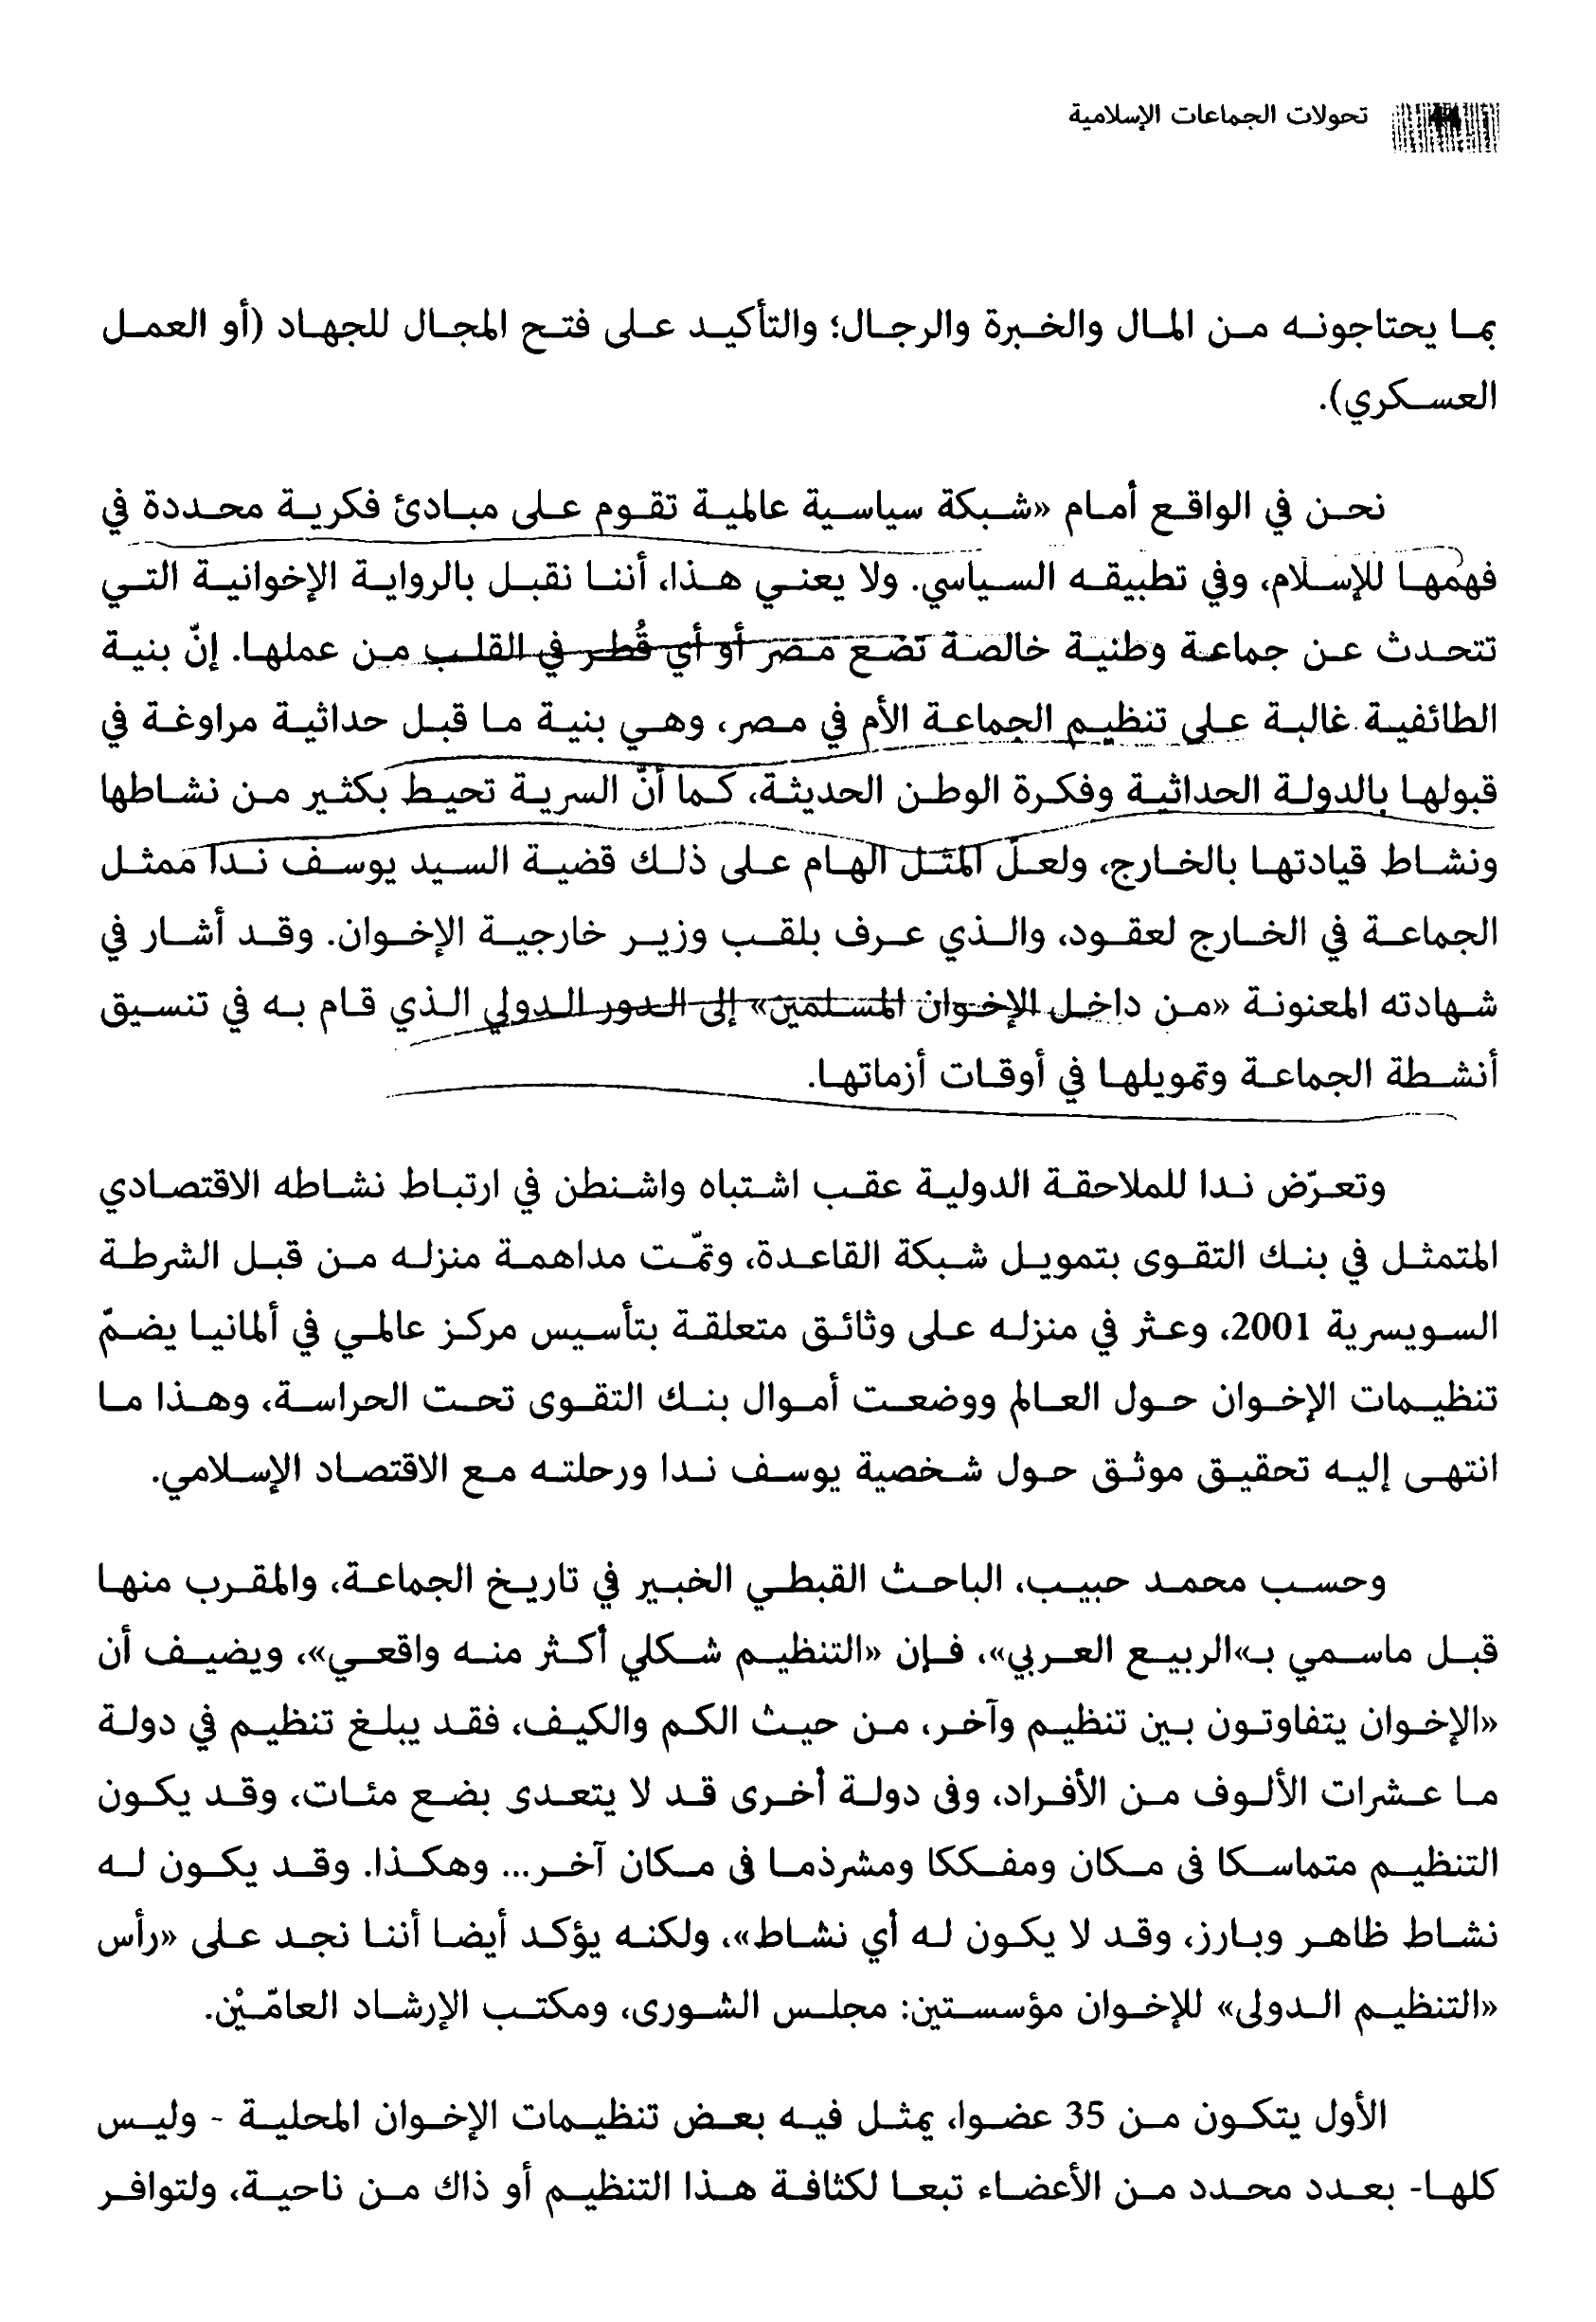 44 تحولات الجماعات الإسلامية
بما يحتاجونه من المال والخبرة والرجال؛ والتأكيد على فتح المجال للجهاد (أو العمل
العسكري).
نحن في الواقع أمام «شبكة سياسية عالمية تقوم على مبادئ فكرية محددة في
فهمها للإسلام، وفي تطبيقه السياسي. ولا يعني هذا، أننا نقبل بالرواية الإخوانية التي
تتحدث عن جماعة وطنية خالصة تضع مصر أو أي قُطر في القلب من عملها. إنّ بنية
الطائفية غالبة على تنظيم الجماعة الأم في مصر، وهي بنية ما قبل حداثية مراوغة في
قبولها بالدولة الحداثية وفكرة الوطن الحديثة، كما أنّ السرية تحيط بكثير من نشاطها
ونشاط قيادتها بالخارج، ولعلّ المثل الهام على ذلك قضية السيد يوسف ندا ممثل
الجماعة في الخارج لعقود، والذي عرف بلقب وزير خارجية الإخوان. وقد أشار في
شهادته المعنونة «من داخل الإخوان المسلمين» إلى الدور الدولي الذي قام به في تنسيق
أنشطة الجماعة وتمويلها في أوقات أزماتها.
وتعرّض ندا للملاحقة الدولية عقب اشتباه واشنطن في ارتباط نشاطه الاقتصادي
المتمثل في بنك التقوى بتمويل شبكة القاعدة، وتمّت مداهمة منزله من قبل الشرطة
السويسرية 2001، وعثر في منزله على وثائق متعلقة بتأسيس مركز عالمي في ألمانيا يضمّ
تنظيمات الإخوان حول العالم ووضعت أموال بنك التقوى تحت الحراسة، وهذا ما
انتهى إليه تحقيق موثق حول شخصية يوسف ندا ورحلته مع الاقتصاد الإسلامي.
وحسب محمد حبيب، الباحث القبطي الخبير في تاريخ الجماعة، والمقرب منها
قبل ماسمي بـ»الربيع العربي»، فإن «التنظيم شكلي أكثر منه واقعي»، ويضيف أن
«الإخوان يتفاوتون بين تنظيم وآخر، من حيث الكم والكيف، فقد يبلغ تنظيم في دولة
ما عشرات الألوف من الأفراد، وفى دولة أخرى قد لا يتعدى بضع مئات، وقد يكون
التنظيم متماسكا فى مكان ومفككا ومشرذما فى مكان آخر... وهكذا. وقد يكون له
نشاط ظاهر وبارز، وقد لا يكون له أي نشاط»، ولكنه يؤكد أيضا أننا نجد على «رأس
«التنظيم الدولى» للإخوان مؤسستين: مجلس الشورى، ومكتب الإرشاد العامّيْن.
الأول يتكون من 35 عضوا، يمثل فيه بعض تنظيمات الإخوان المحلية - وليس
كلها- بعدد محدد من الأعضاء تبعا لكثافة هذا التنظيم أو ذاك من ناحية، ولتوافر